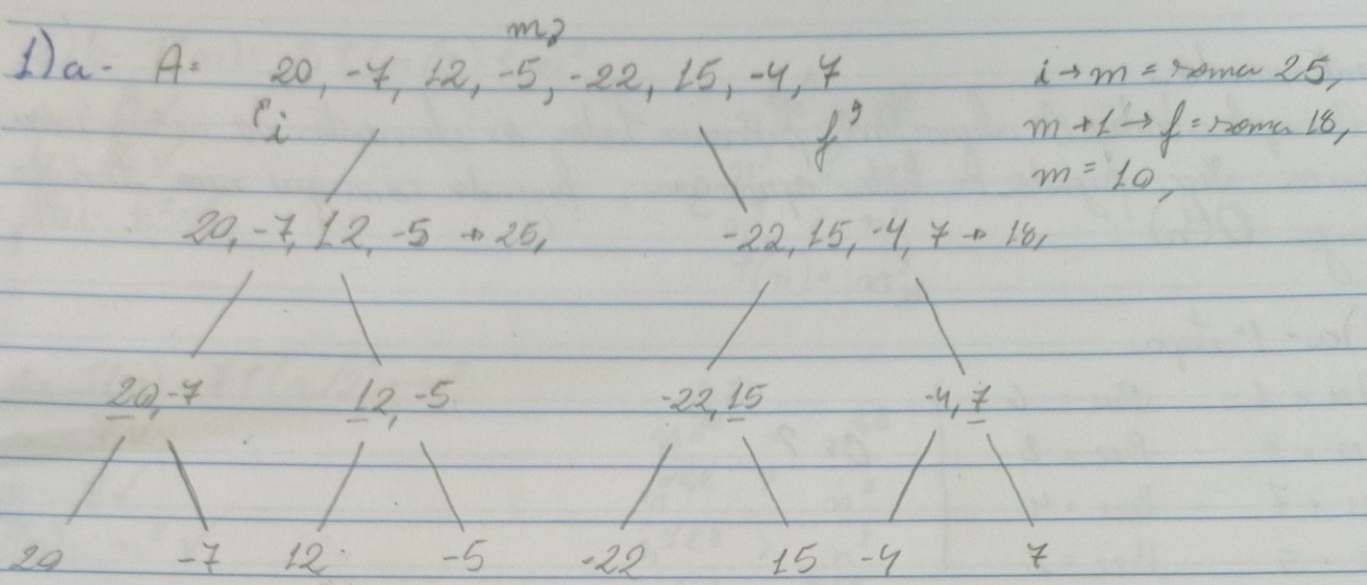 m
1) a - A = 20, -7, 12, -5, -22, 15, -4, 7
i → m = soma 25,
i
f
m + 1 → f = soma 18,
m = 10,
20, -7, 12, -5 → 25,
-22, 15, -4, 7 → 18,
20, -7
12, -5
-22, 15
-4, 7
20 -7 12 -5 -22 15 -4 7